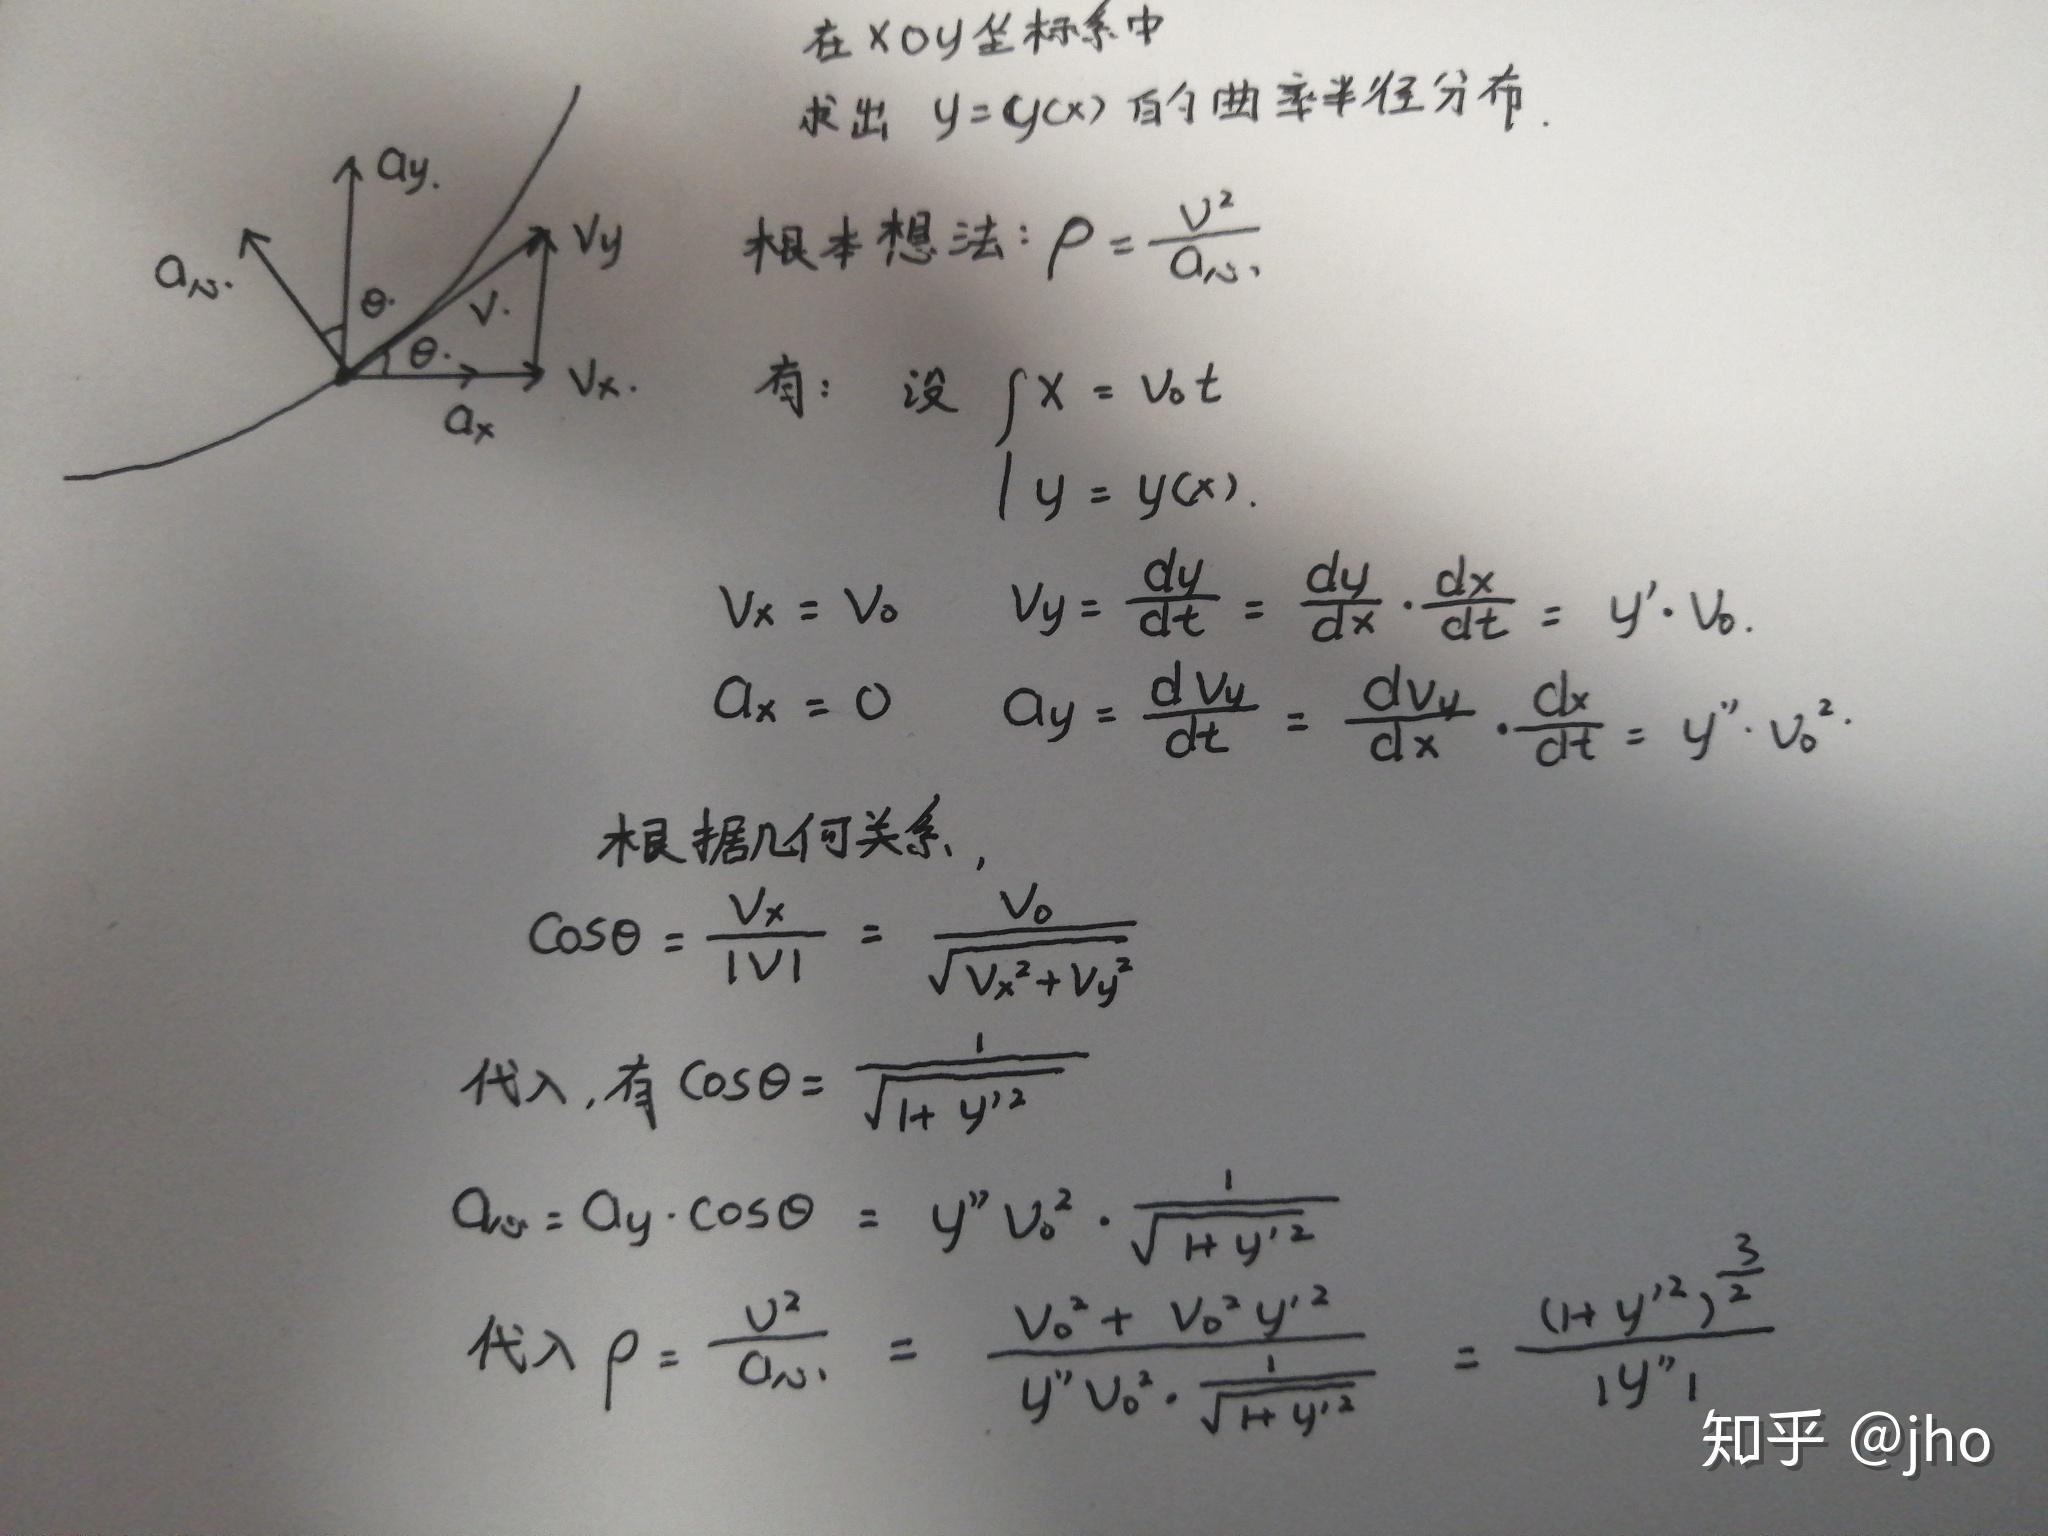 在xoy坐标系中
求出 y=y(x) 的曲率半径分布.
ay.
a心.
θ.
Vy
V.
θ.
Vx.
ax
根本想法: ρ = v²/a心.
有: 设 { x = v₀t
y = y(x).
Vx = V₀ Vy = dy/dt = dy/dx · dx/dt = y'·V₀.
ax = 0 ay = dVy/dt = dVy/dx · dx/dt = y''·v₀².
根据几何关系,
cosθ = Vx/|V| = V₀/√(Vx²+Vy²)
代入,有 cosθ = 1/√(1+y'²)
a心 = ay·cosθ = y''v₀² · 1/√(1+y'²)
代入 ρ = v²/a心. = (V₀² + V₀²y'²)/(y''V₀² · 1/√(1+y'²)) = (1+y'²)^(3/2)/|y''|
知乎 @jho